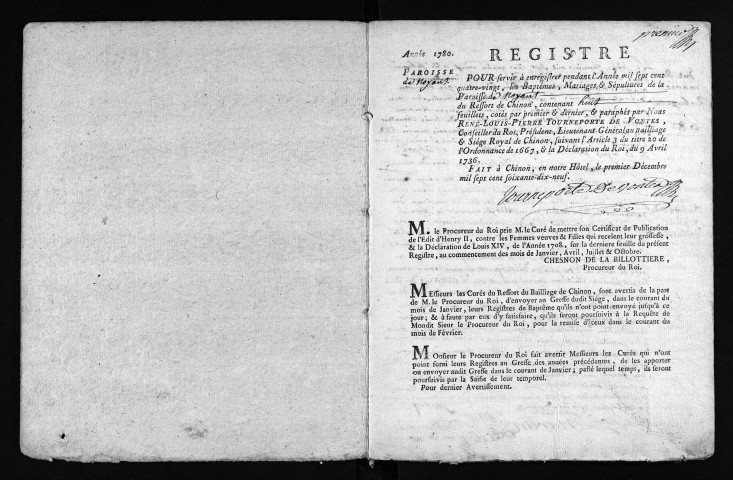 premier
Année 1780.
REGISTRE
PAROISSE
de Noyant
POUR servir à enregistrer pendant l'Année mil sept cent
quatre-vingt, les Baptêmes, Mariages & Sépultures de la
Paroisse de Noyant
du Ressort de Chinon, contenant huit
feuillets, cotés par premier & dernier, & paraphés par Nous
RENÉ-LOUIS-PIERRE TOURNEPORTE DE VONTES,
Conseiller du Roi, Président, Lieutenant Général au Bailliage
& Siége Royal de Chinon, suivant l'Article 3 du titre 20 de
l'Ordonnance de 1667, & la Déclaration du Roi, du 9 Avril
1736.
FAIT à Chinon, en notre Hôtel, le premier Décembre
mil sept cent soixante-dix-neuf.
Tourneporte Devontes
M. le Procureur du Roi prie M. le Curé de mettre son Certificat de Publication
de l'Edit d'Henry II, contre les Femmes veuves & Filles qui recelent leur grossesse,
& la Déclaration de Louis XIV, de l'Année 1708, sur la derniere feuille du présent
Registre, au commencement des mois de Janvier, Avril, Juillet & Octobre.
CHESNON DE LA BILLOTTIERE,
Procureur du Roi.
MEssieurs les Curés du Ressort du Bailliage de Chinon, sont avertis de la part
de M. le Procureur du Roi, d'envoyer au Greffe dudit Siége, dans le courant du
mois de Janvier, leurs Registres de Baptême qu'ils n'ont point envoyé jusqu'à ce
jour; & à faute par eux d'y satisfaire, qu'ils seront poursuivis à la Requête de
Mondit Sieur le Procureur du Roi, pour la remise d'iceux dans le courant du
mois de Février.
MOnsieur le Procureur du Roi fait avertir Messieurs les Curés qui n'ont
point forni leurs Registres au Greffe des années précédentes, de les apporter
ou envoyer audit Greffe dans le courant de Janvier; passé lequel temps, ils seront
poursuivis par la Saisie de leur temporel.
Pour dernier Avertissement.